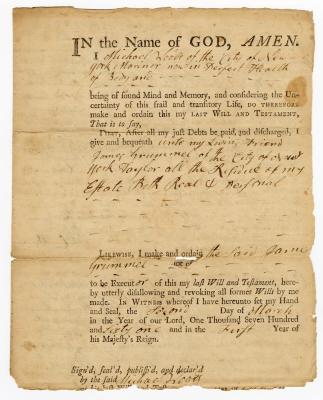 IN the Name of GOD, AMEN.
I Michael of the City of New
York Mariner now in Perfect Health
of
being of sound Mind and Memory, and considering the Un-
certainty of this frail and transitory Life, DO THEREFORE
make and ordain this my LAST WILL AND TESTAMENT,
That is to say,
FIRST, After all my just Debts be paid, and discharged, I
give and bequeath unto my Friend
James of the City of New
York Taylor all the Residue of my
Estate Both Real & Personal
LIKEWISE, I make and ordain the Said James
to be Executor of this my last Will and Testament, here-
by utterly disallowing and revoking all former Wills by me
made. IN WITNESS whereof I have hereunto set my Hand
and Seal, the Second Day of March
in the Year of our Lord, One Thousand Seven Hundred
and sixty one and in the First Year of
his Majesty's Reign.
Sign'd, seal'd, publish'd, and declar'd
by the said Michael